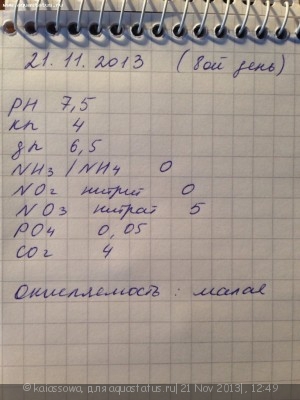 www.aquastatus.ru
21.11.2013 (8ой день)
PH 7,5
КН 4
дН 6,5
NH3 / NH4 0
NO2 нитрит 0
NO3 нитрат 5
PO4 0,05
CO2 4
Окисляемость : малая
© kaiassowa, для aquastatus.ru| 21 Nov 2013|, 12:49